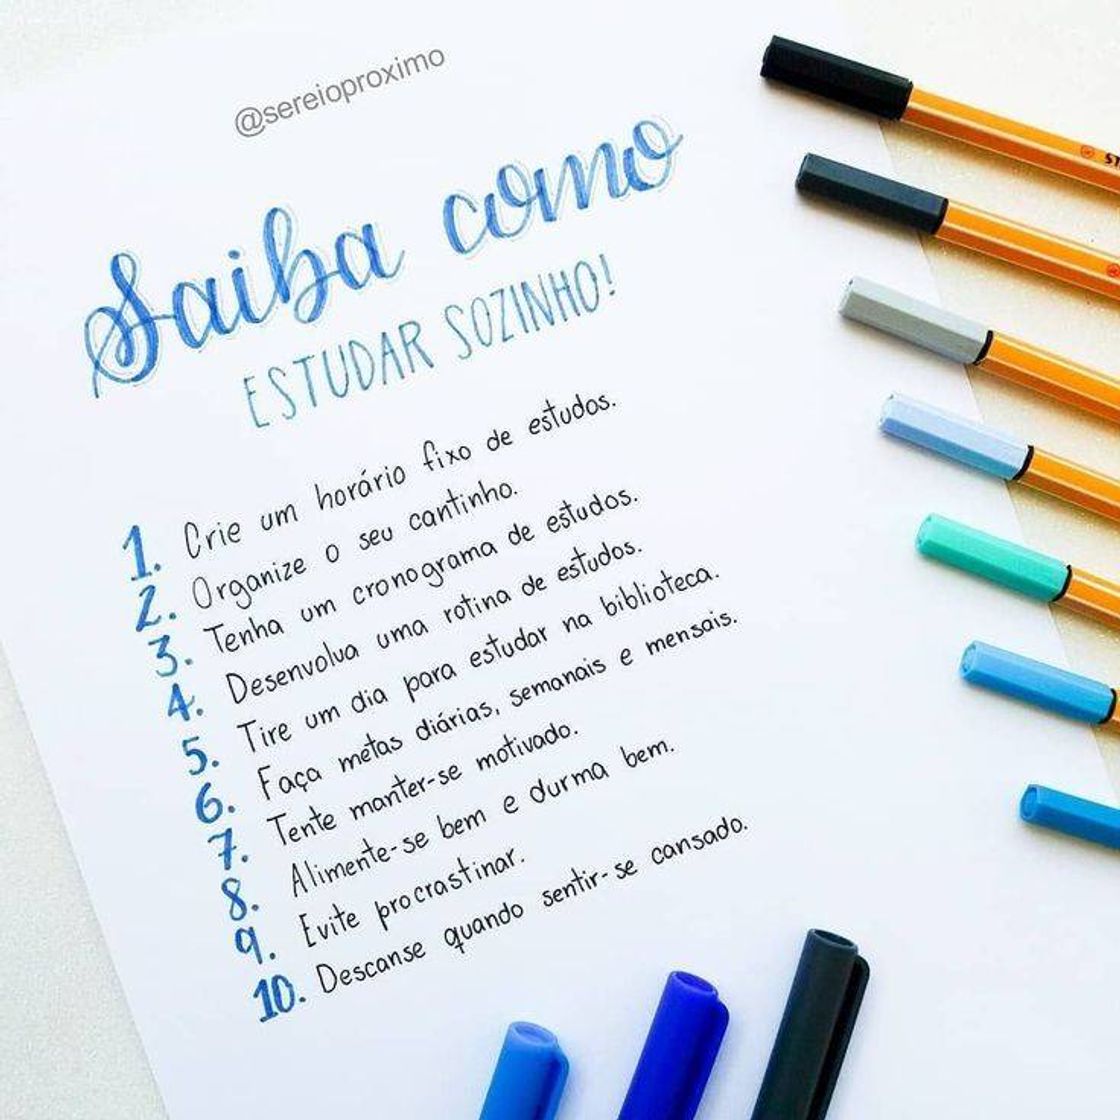 @sereioproximo
Saiba como
ESTUDAR SOZINHO!
1. Crie um horário fixo de estudos.
2. Organize o seu cantinho.
3. Tenha um cronograma de estudos.
4. Desenvolva uma rotina de estudos.
5. Tire um dia para estudar na biblioteca.
6. Faça metas diárias, semanais e mensais.
7. Tente manter-se motivado.
8. Alimente-se bem e durma bem.
9. Evite procrastinar.
10. Descanse quando sentir-se cansado.